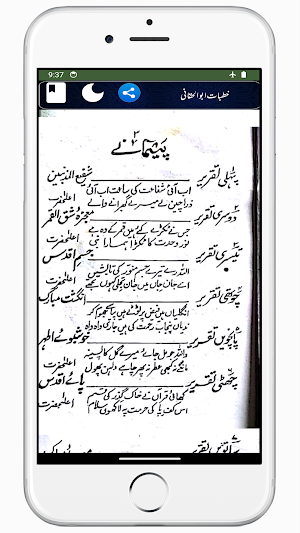 9:37
خطبات ابوالحقانی
۲
پیمانے
پہلی تقریر شفیع المذنبین
اب آئی شفاعت کی ساعت اب آئی
ذرا چین لے میرے گھبرانے والے
اعلحضرت
دوسری تقریر معجزہ شق القمر
جس نے ٹکڑے کئے ہیں قمر کے وہ ہے
نور وحدت کا ٹکڑا ہمارا نبی
اعلحضرت
تیسری تقریر جسم اقدس
اللہ رے تیرے جسم منور کی تابشیں
اے جان جاں میں جان تجلی کہوں تجھے
اعلحضرت
چوتھی تقریر انگشت مبارک
انگلیاں ہیں فیض پر ٹوٹے ہیں پیاسے جھوم کر
ندیاں پنجاب رحمت کی ہیں جاری واہ واہ
اعلحضرت
پانچویں تقریر خوشبوئے اطہر
واللہ جو مل جائے میرے گل کا پسینہ
مانگے نہ کبھی عطر نہ پھر چاہے دلہن پھول
اعلحضرت
چھٹی تقریر پائے اقدس
کھائی قرآں نے خاک گزر کی قسم
اس کف پا کی حرمت پہ لاکھوں سلام
اعلحضرت
ساتویں تقریر